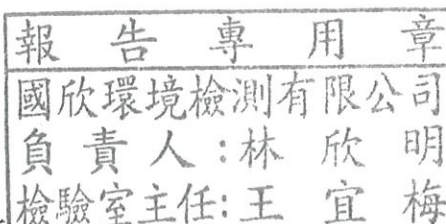 報告專用章
國欣環境檢測有限公司
負責人:林欣明
檢驗室主任:王宜梅